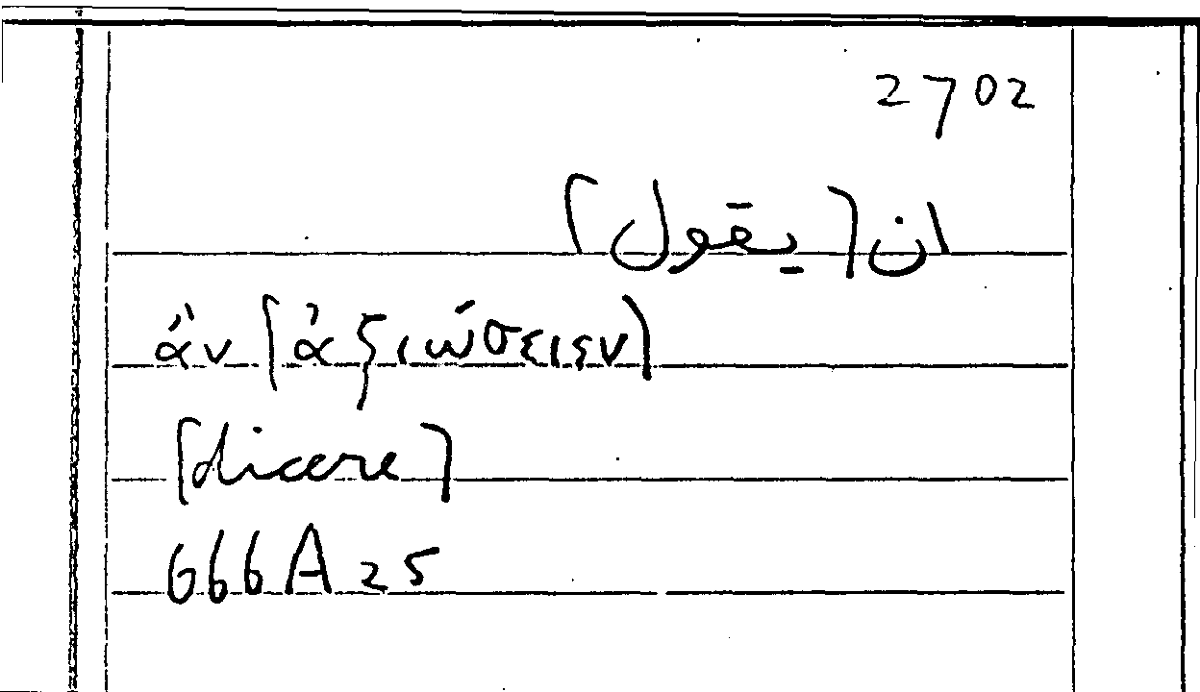 2702
ان [يقول]
ἄν [ἀξιώσειεν]
[dicere]
666A25